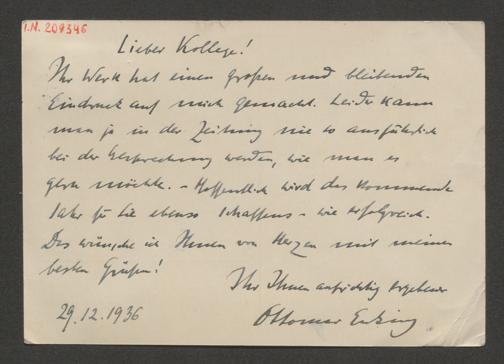 I.N. 209346
Lieber Kollege!
Ihr Werk hat einen großen und bleibenden
Eindruck auf mich gemacht. Leider kann
man ja in der Zeitung nie so ausführlich
bei der Besprechung werden, wie man es
gern möchte. – Hoffentlich wird das kommende
Jahr für Sie ebenso schaffens- wie erfolgreich.
Das wünsche ich Ihnen von Herzen mit meinen
besten Grüßen!
Ihr Ihnen aufrichtig ergebener
29.12.1936
Ottomar Enking